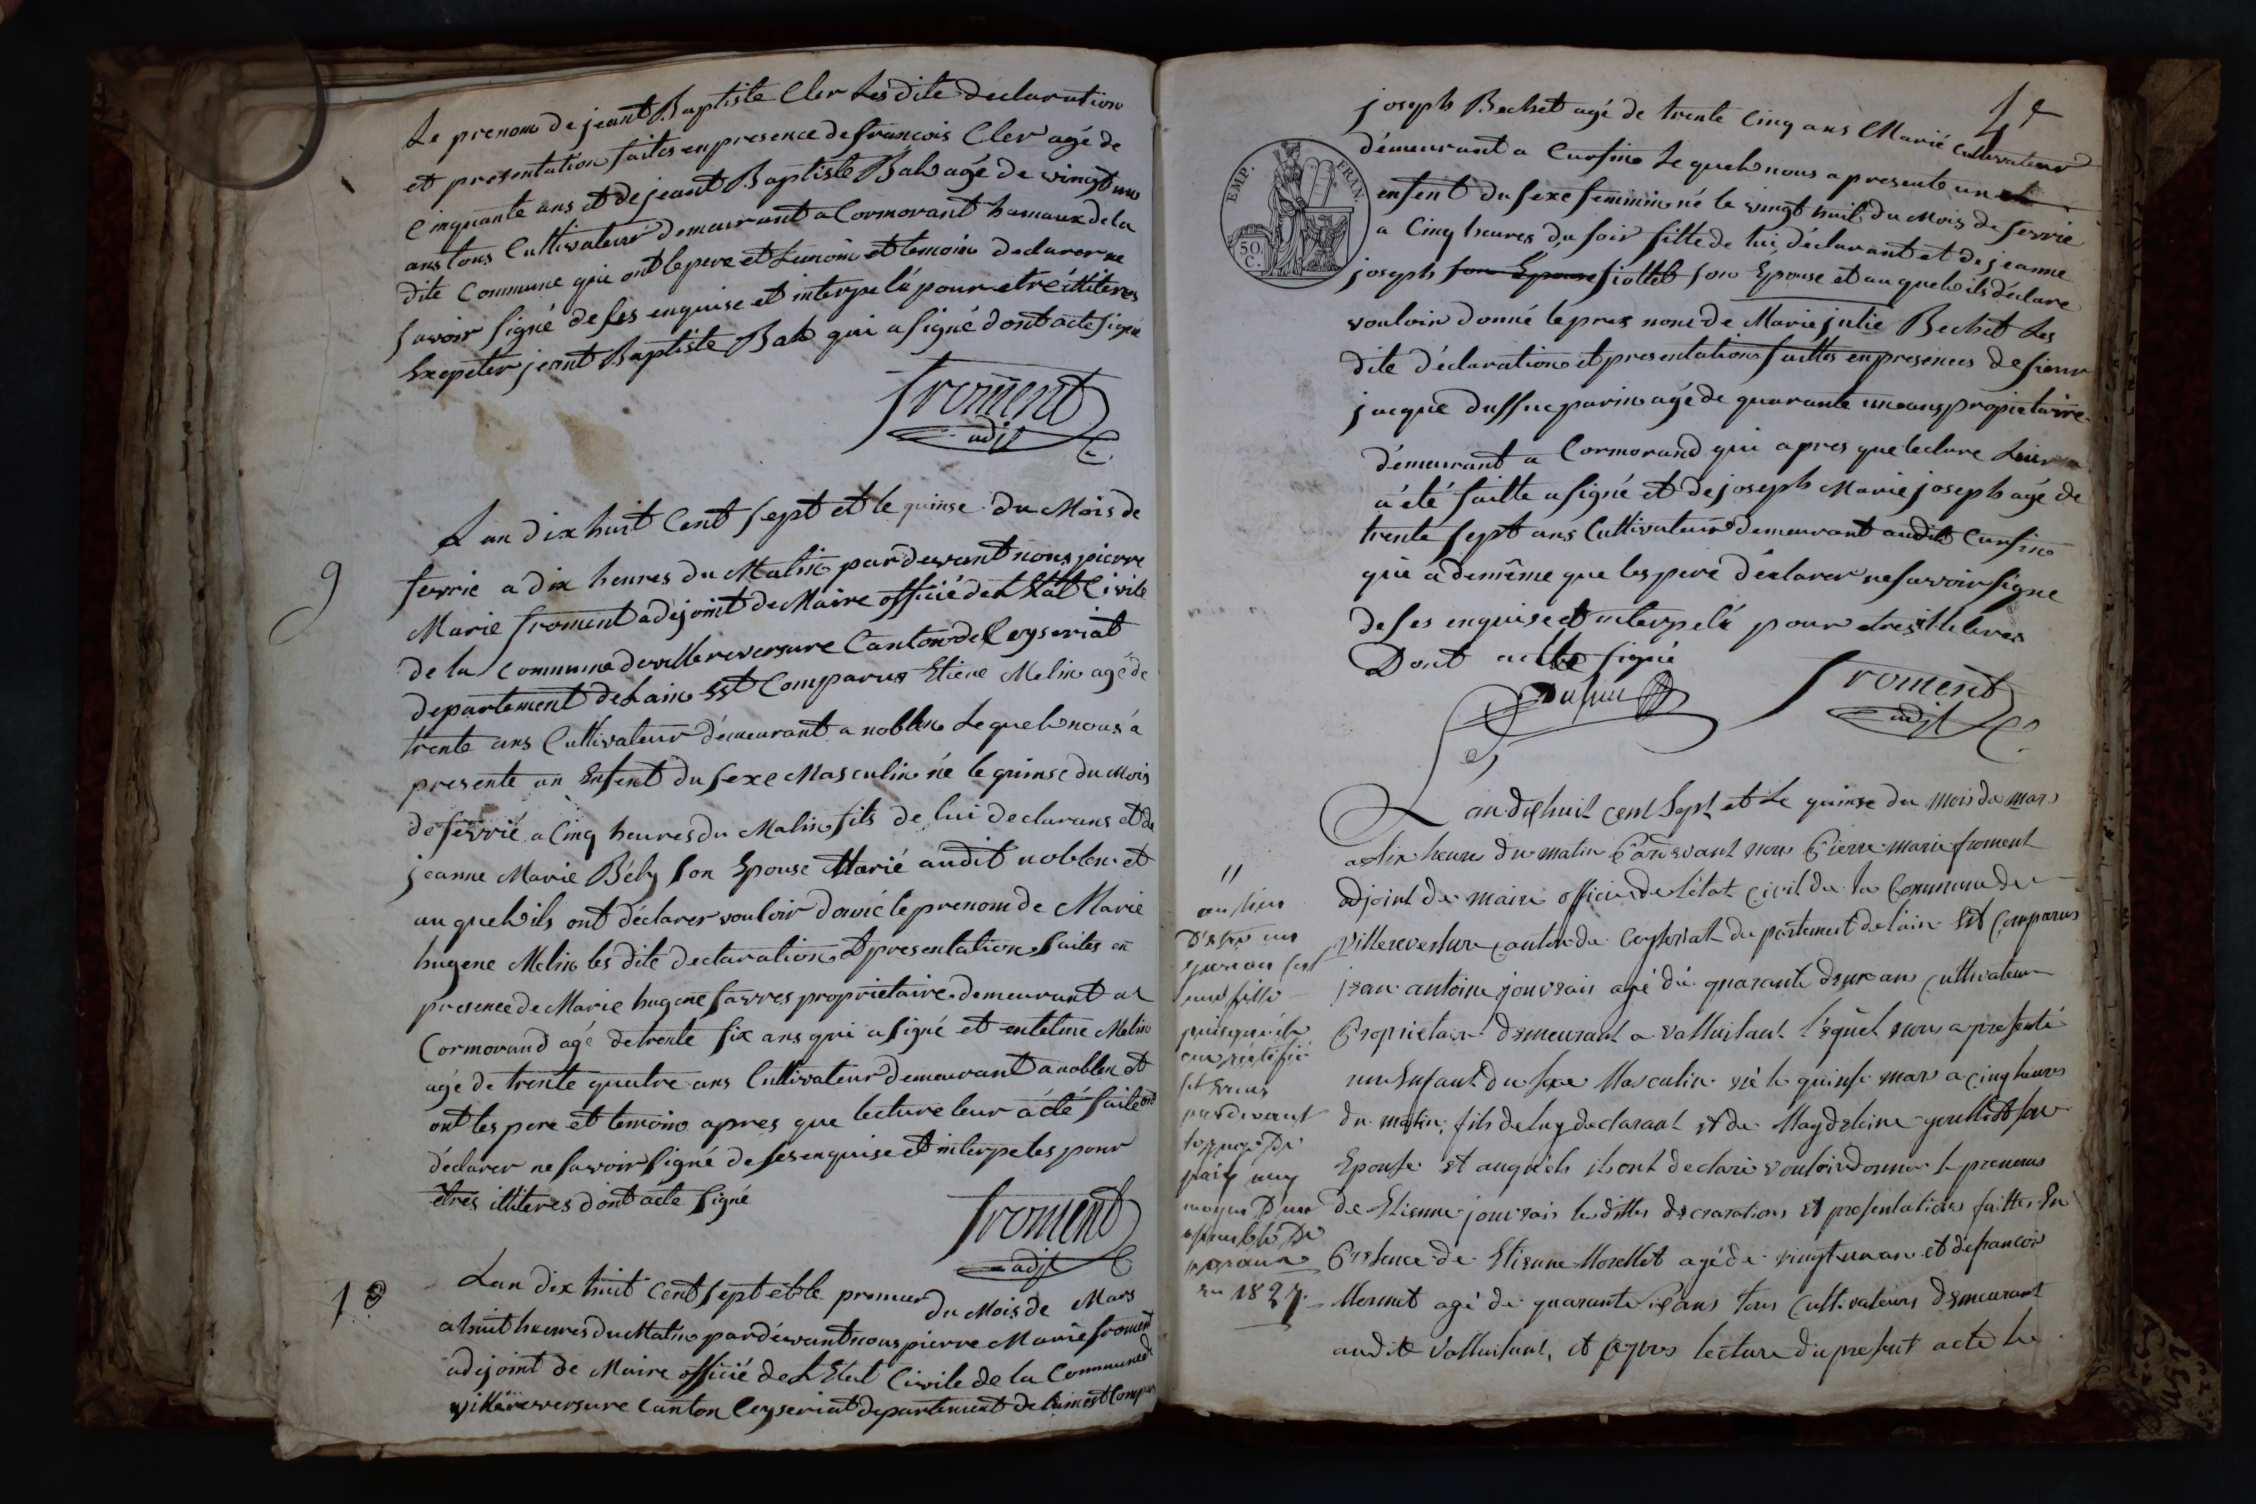 Le prenom de jeant Baptiste Cler Les dite declaration
et presentation faites en presence de francois Cler agé de
Cinquante ans et de jeant Baptiste Bal agé de vingt un
ans tous Cultivateur demeurant a Cormorant hamaux de la
dite Commune qui ont le pere et Lunoin et temoin declarer ne
savoir signé de ses enquise et interpelé pour etre illiteres
Exepeter jeant Baptiste Bal qui a signé dont acte signé
froment
adjt
9
Lan dix huit Cent sept et le quinse du Mois de
fevrie a dix heures du Matin pardevant nous pierre
Marie froment adejoint de Maire officié de L Etat Civile
de la Commune de villereversure Canton de Ceyseriat
departement de Lain Est Comparus Etiene Melin agé de
trente ans Cultivateur demeurant a noblen Lequel nous a
presente un Enfent du sexe Masculin né le quinse du Mois
de fevrié a Cinq heures du Matin fils de lui declarans et de
jeanne Marie Bély son Epouse Marié audit noblen et
au quel ils ont déclarer vouloir donné le prenom de Marie
hugene Melin les dite declaration et presentation faites en
presence de Marie hugene favres propriétaire demeurant a
Cormorand agé de trente six ans qui a signé et Melin
agé de trente quatre ans Cultivateur demeurant a noblen et
ont les pere et temoins apres que lecture leur a été faite ont
déclarer ne savoir signé de ses enquise et interpeles pour
etres illiteres dont acte signé
froment
adjt
10
Lan dix huit Cent sept et le premier du Mois de Mars
a huit heures du Matin pardevant nous pierre Marie froment
adejoint de Maire officié de L Etat Civile de la Commune de
villereversure Canton Ceyseriat departement de Lain est Compar
joseph Bechet agé de trente Cinq ans Marié Cultivateur
démeurant a Cursin Lequel nous a presente un
EMP. FRAN.
50 C.
enfent du sexe feminin né le vingt huit du Mois de fevrie
a Cinq heures du soir fille de lui déclarant et de jeanne
joseph son Epouse fiollet son Epouse et au quel ils déclare
vouloir donné le pres nom de Marie julie Bechet Les
dite déclaration et presentation faittes en presences de sieur
jacque Duffuc parin agé de quarante un ans propietairre
démeurant a Cormorand qui apres que lecture Leur
a été faitte a signé et de joseph Marie joseph agé de
trente sept ans Cultivateur demeurant audit Cursin
qui a demême que les pere déclarer ne savoir signe
de ses enquise et interpelé pour etres illiteres
Dont acte signé
froment
adjt
L an dix huit cent sept et Le quinse du mois de mars
a dix heure du matin Pardevant nous Pierre marie froment
adjoint de maire officier de l'état civil de la Commune de
villereversure canton de Ceyseriat departement de l'ain Est Comparus
jean antoine jouvrais agé de quarante deux ans cultivateur
Proprietaire demeurant a lequel nous a presenté
un Enfant du sexe Masculin né le quinse mars a cinq heures
du matin, fils de luy declarant et de Magdeleine son
Epouse et auquels ils ont declaré vouloir donner le prenoms
de Etienne jouvrais les dittes declarations et presentations faittes En
Presence de Etienne Morellet agé de vingt un an et de francois
Mermet agé de quarante ans tous cultivateurs demeurant
audit et apres lecture du present acte le
"
au lieu
D'être un
garçon c'est
une fille
puisqu'il a
été rectifié
pardevant
le juge De
paix
moyen D'une
assemblée De
parens
en 1827.